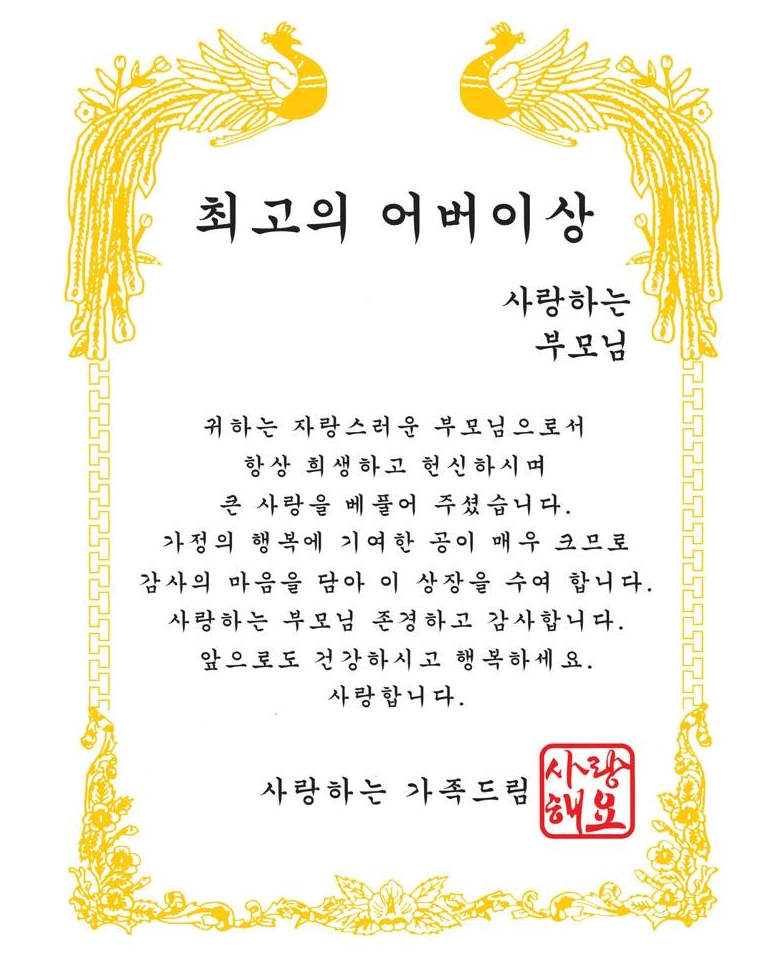 최고의 어버이상
사랑하는
부모님
귀하는 자랑스러운 부모님으로서
항상 희생하고 헌신하시며
큰 사랑을 베풀어 주셨습니다.
가정의 행복에 기여한 공이 매우 크므로
감사의 마음을 담아 이 상장을 수여 합니다.
사랑하는 부모님 존경하고 감사합니다.
앞으로도 건강하시고 행복하세요.
사랑합니다.
사랑하는 가족드림
사랑
해요